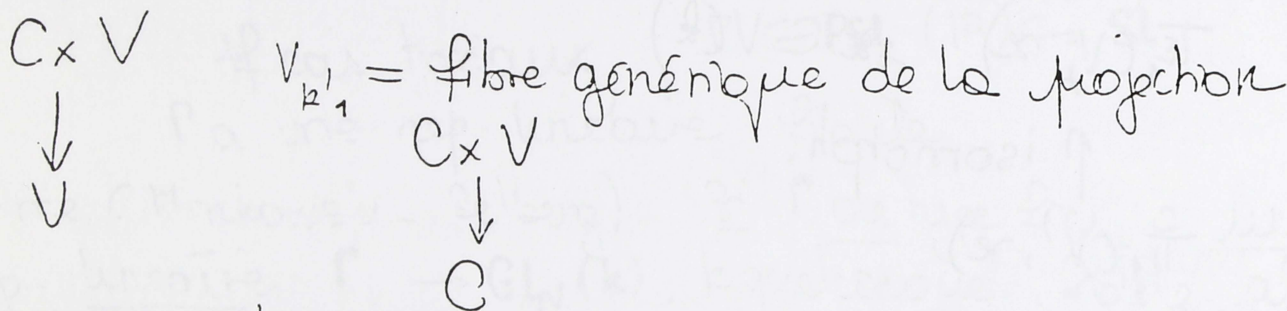 C × V
↓
V
V_{k'_1} = fibre générique de la projection
C × V
↓
C